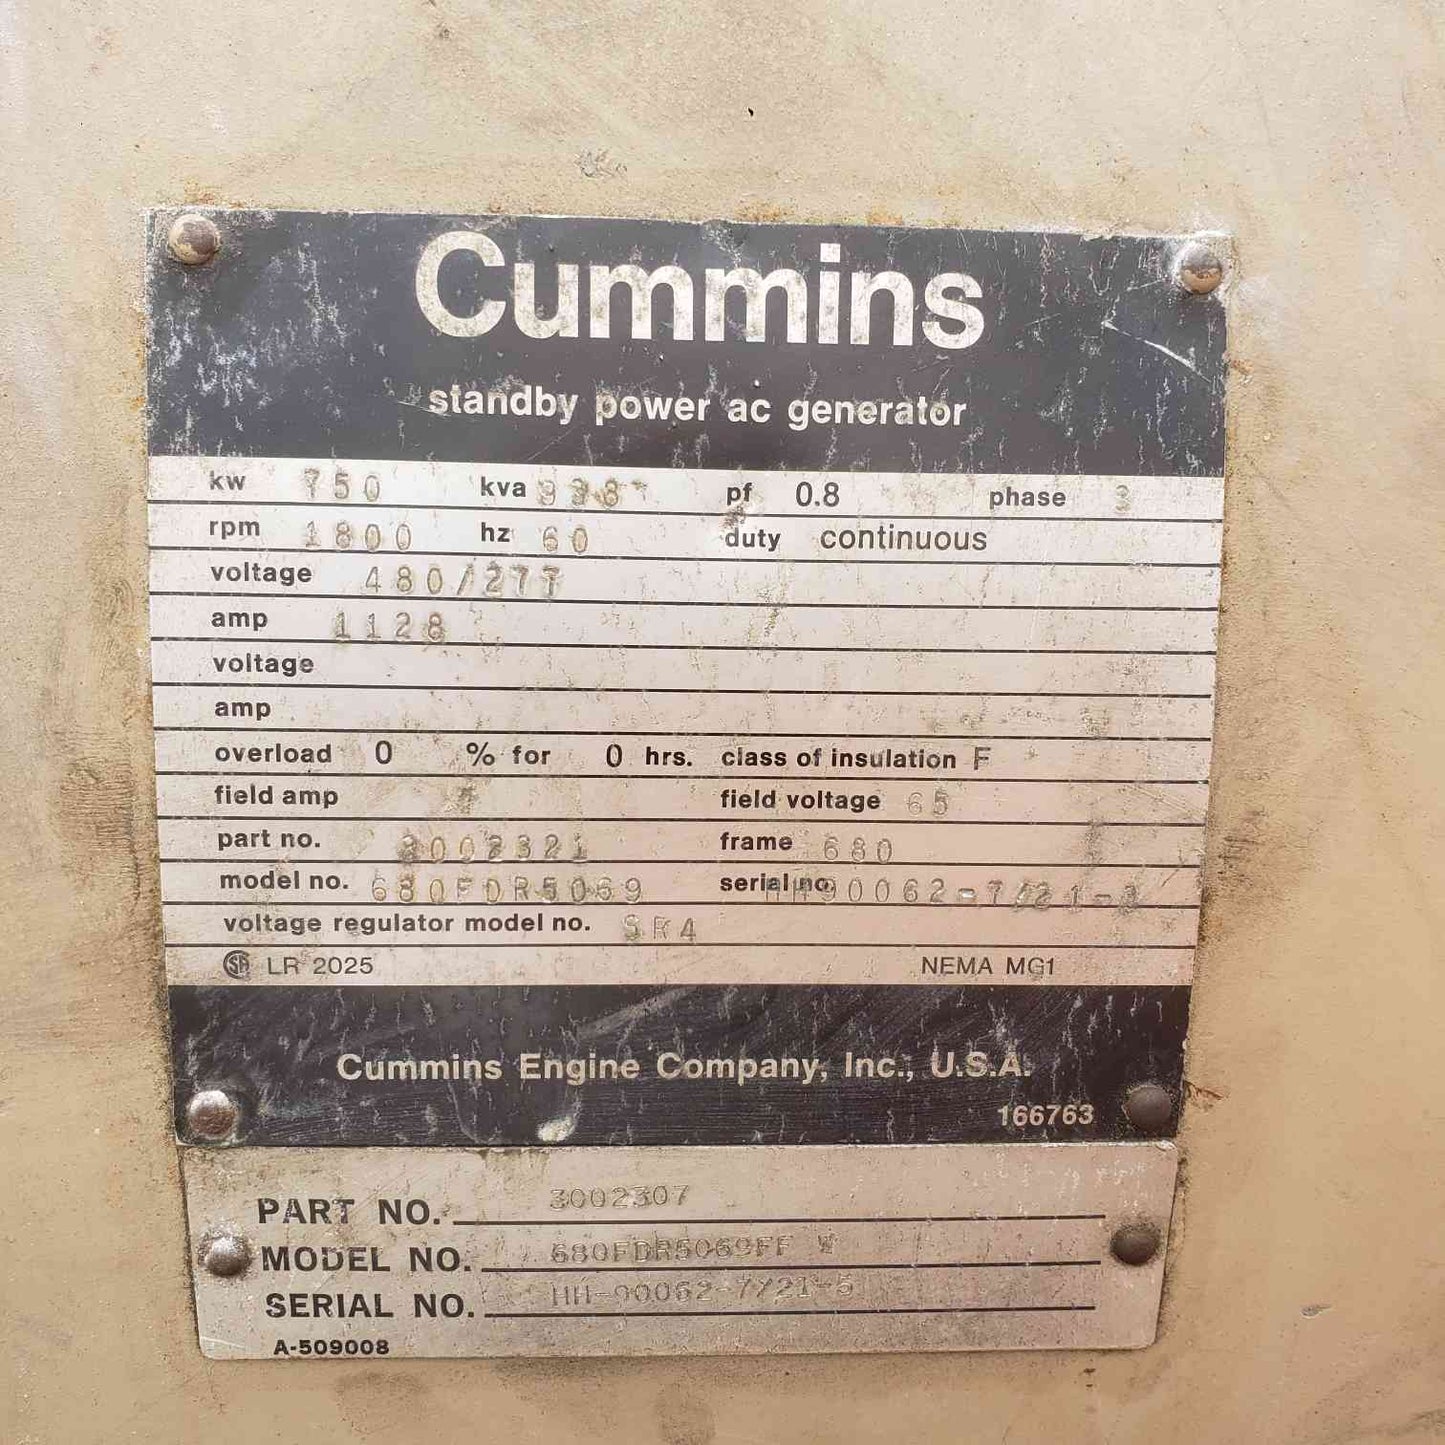 Cummins
standby power ac generator
kw 750 kva 938 pf 0.8 phase 3
rpm 1800 hz 60 duty continuous
voltage 480/277
amp 1128
voltage
amp
overload 0 % for 0 hrs. class of insulation F
field amp field voltage 65
part no. 3002321 frame 680
model no. 680FDR5069 serial no.
voltage regulator model no. SR4
SA LR 2025 NEMA MG1
Cummins Engine Company, Inc., U.S.A.
166763
PART NO. 3002307
MODEL NO. 680FDR5069FF W
SERIAL NO. HH-90062-7/21-5
A-509008